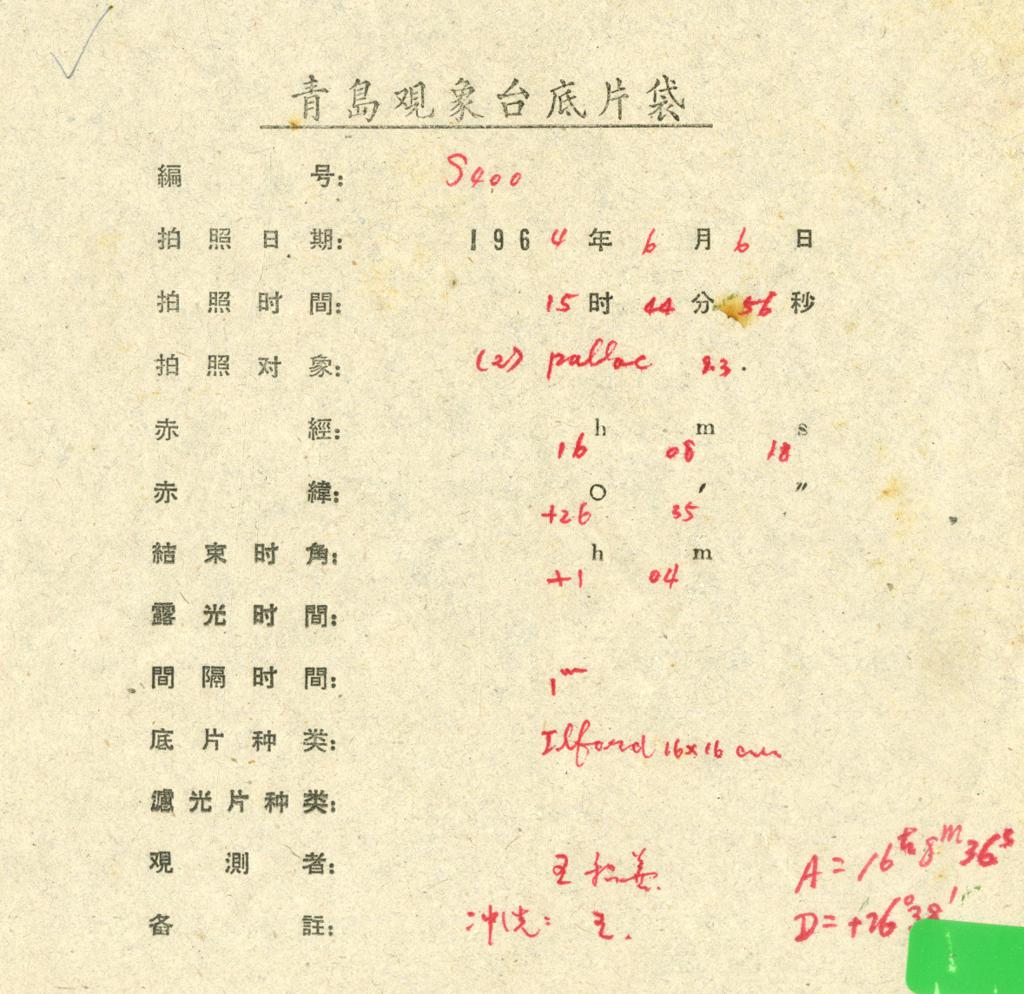 青島观象台底片袋
編 号: S400
拍照日期: 1964年6月6日
拍照时間: 15时44分56秒
拍照对象: (2) pallac 9.3.
赤 經: 16h 08m 18s
赤 緯: +26° 35′ ″
結束时角: +1h 04m
露光时間:
間隔时間: 1m
底片种类: Ilford 16×16 cm
濾光片种类:
观測者: 王
备 註: 冲洗: 王.
A = 16h 8m 36s
D = +26° 38′